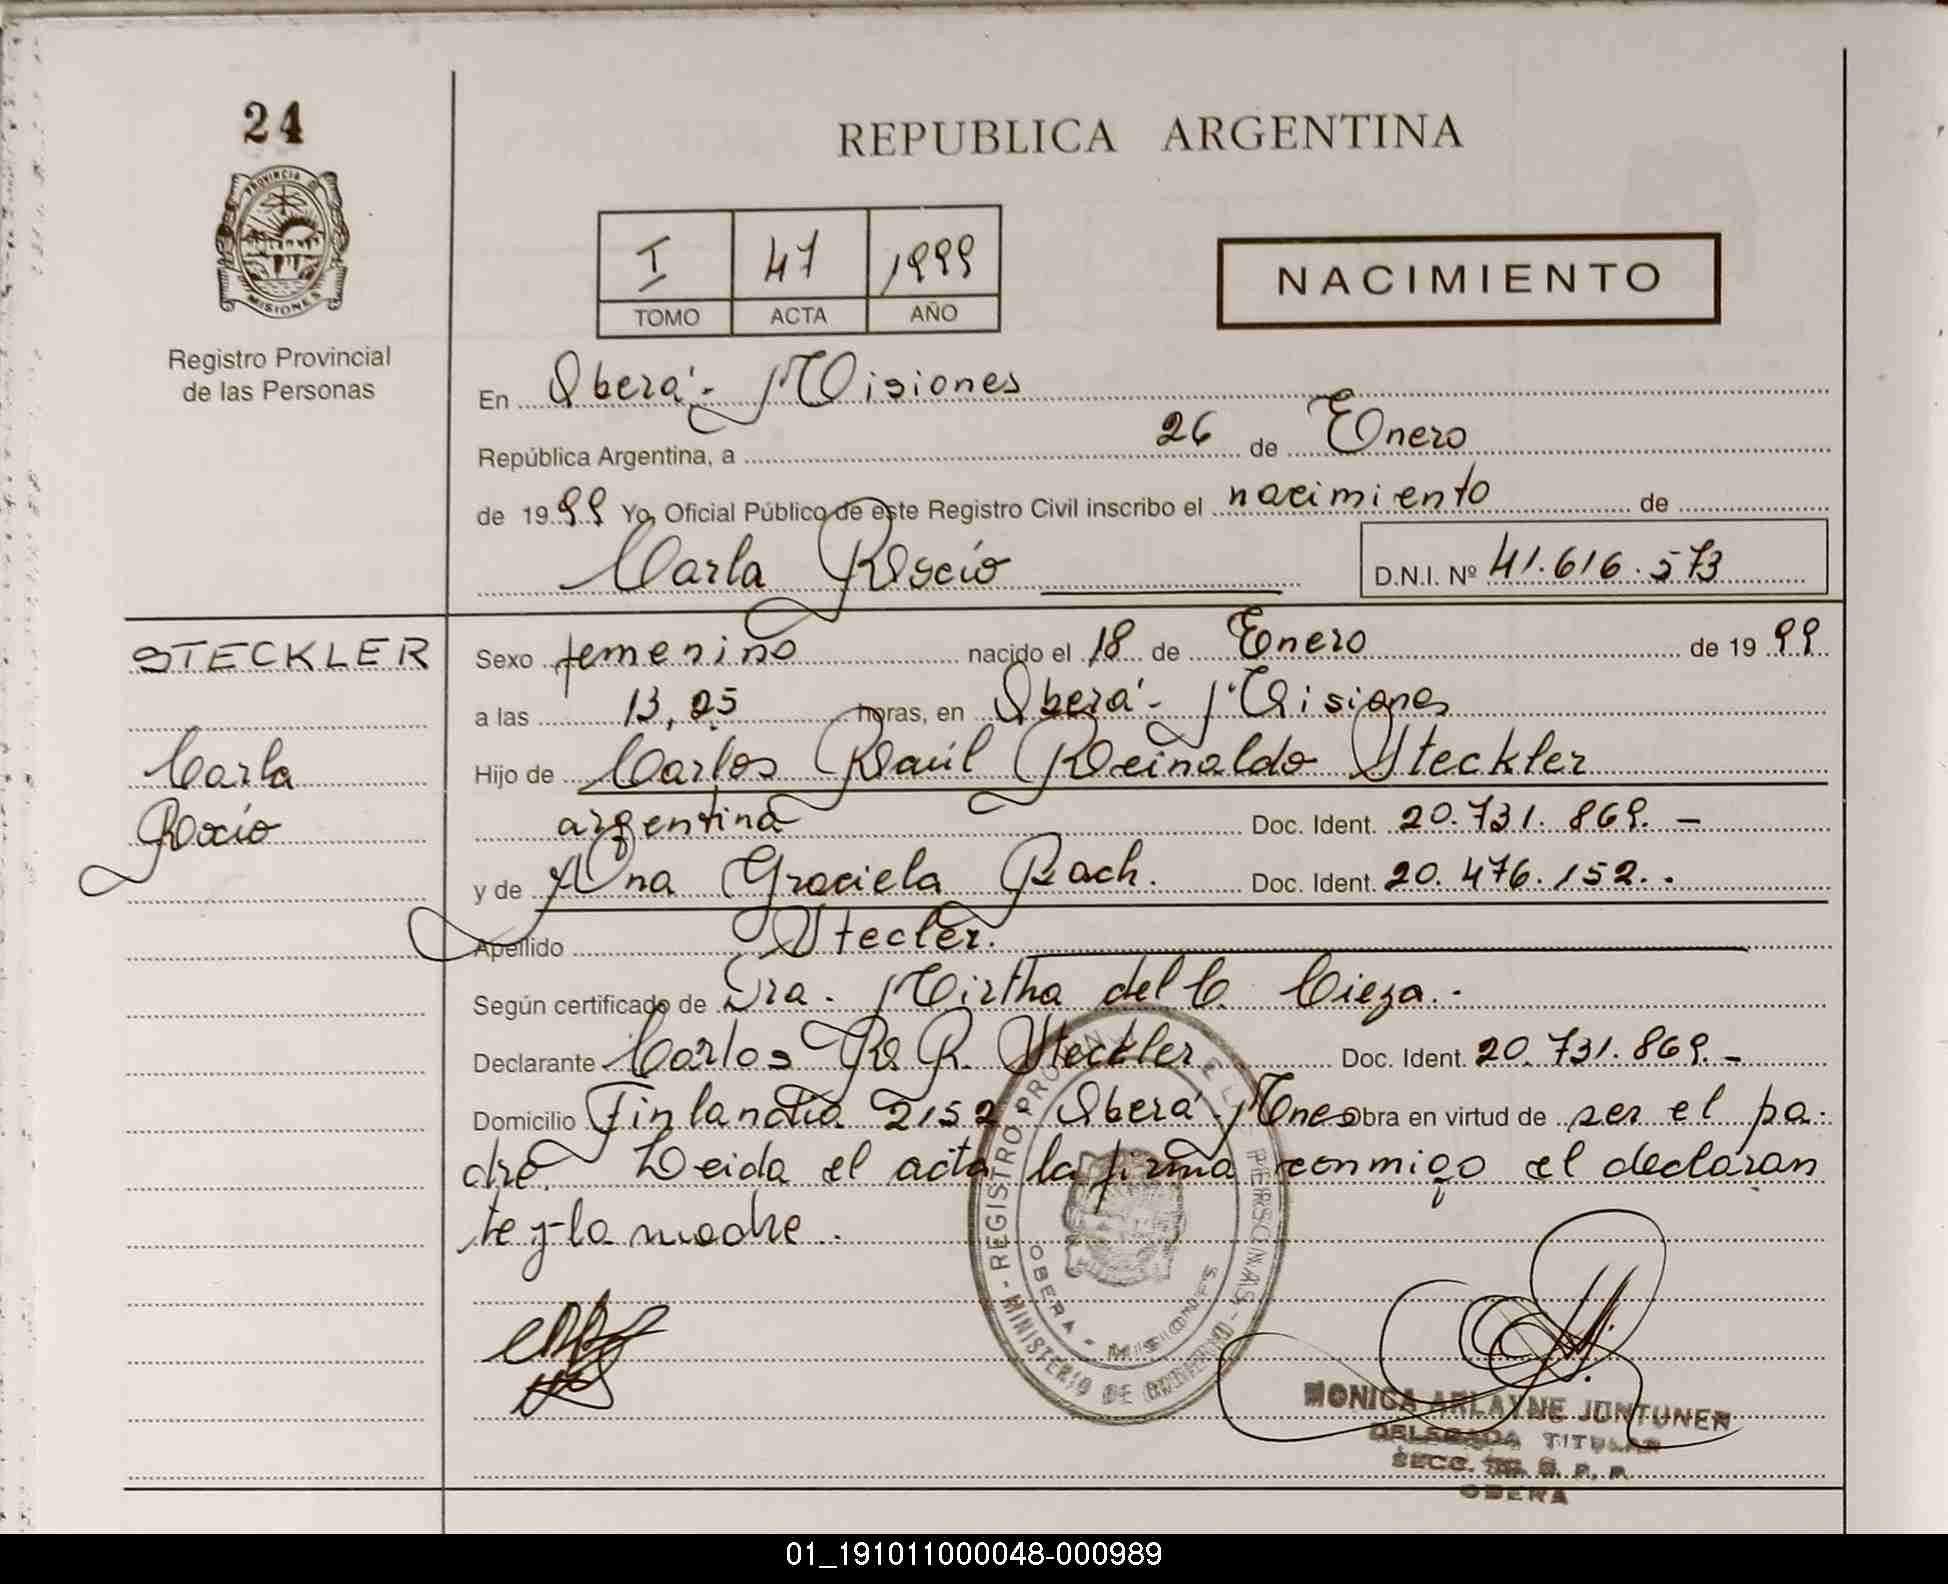 24
PROVINCIA D
MISIONES
Registro Provincial
de las Personas
REPUBLICA ARGENTINA
I 47 1999
TOMO ACTA AÑO
NACIMIENTO
En Oberá - Misiones
República Argentina, a 26 de Enero
de 1999 Yo, Oficial Público de este Registro Civil inscribo el nacimiento de
Carla Rocío
D.N.I. Nº 41.616.573
STECKLER
Carla
Rocío
Sexo femenino nacido el 18 de Enero de 1999
a las 13,25 horas, en Oberá - Misiones
Hijo de Carlos Raúl Reinaldo Steckler
argentina Doc. Ident. 20.731.869.-
y de Ana Graciela Rach. Doc. Ident. 20.476.152..
Apellido Stecler.
Según certificado de Dra. Mirtha del C. Cieza.-
Declarante Carlos R. R. Steckler Doc. Ident. 20.731.869.-
Domicilio Finlandia 2152 Oberá - Mnes Obra en virtud de ser el pa-
dre. Leida el acta la firma conmigo el declaran
te y la madre.
REGISTRO PERSONAS
MINISTERIO DE GOBIERNO
OBERA - MISIONES
MONICA ARLAYNE JUNTUNEN
DELEGADA TITULAR
SECC. R. P. P.
OBERA
01_191011000048-000989